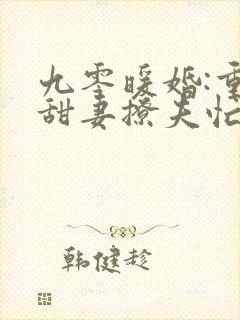 九零暖婚:重
甜妻撩夫忙
韩健趁